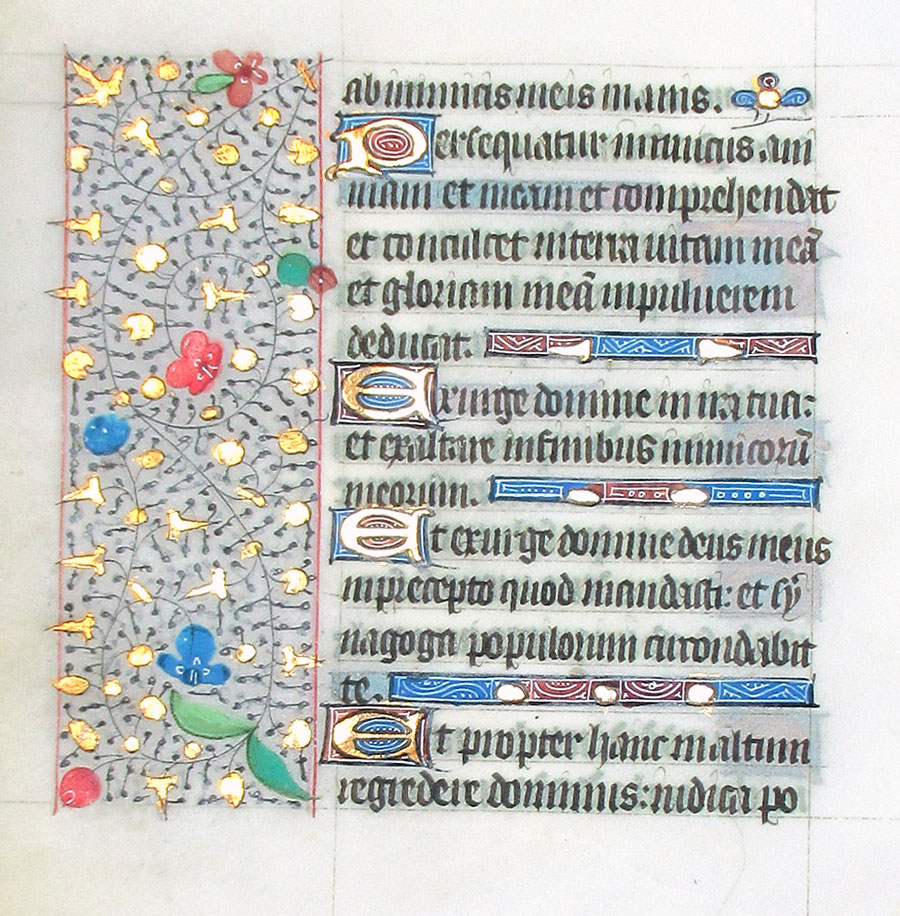 ab inimicis meis inanis.
Persequatur inimicus ani
mam et meam et comprehendat
et conculcet in terra uitam meā
et gloriam meā in puluerem
deducat.
Exurge domine in ira tua:
et exaltare in finibus inimicorū
meorum.
Et exurge domine deus meus
in precepto quod mandasti: et sy
nagoga populorum circondabit
te.
Et propter hanc in altum
regredere dominus: iudica po